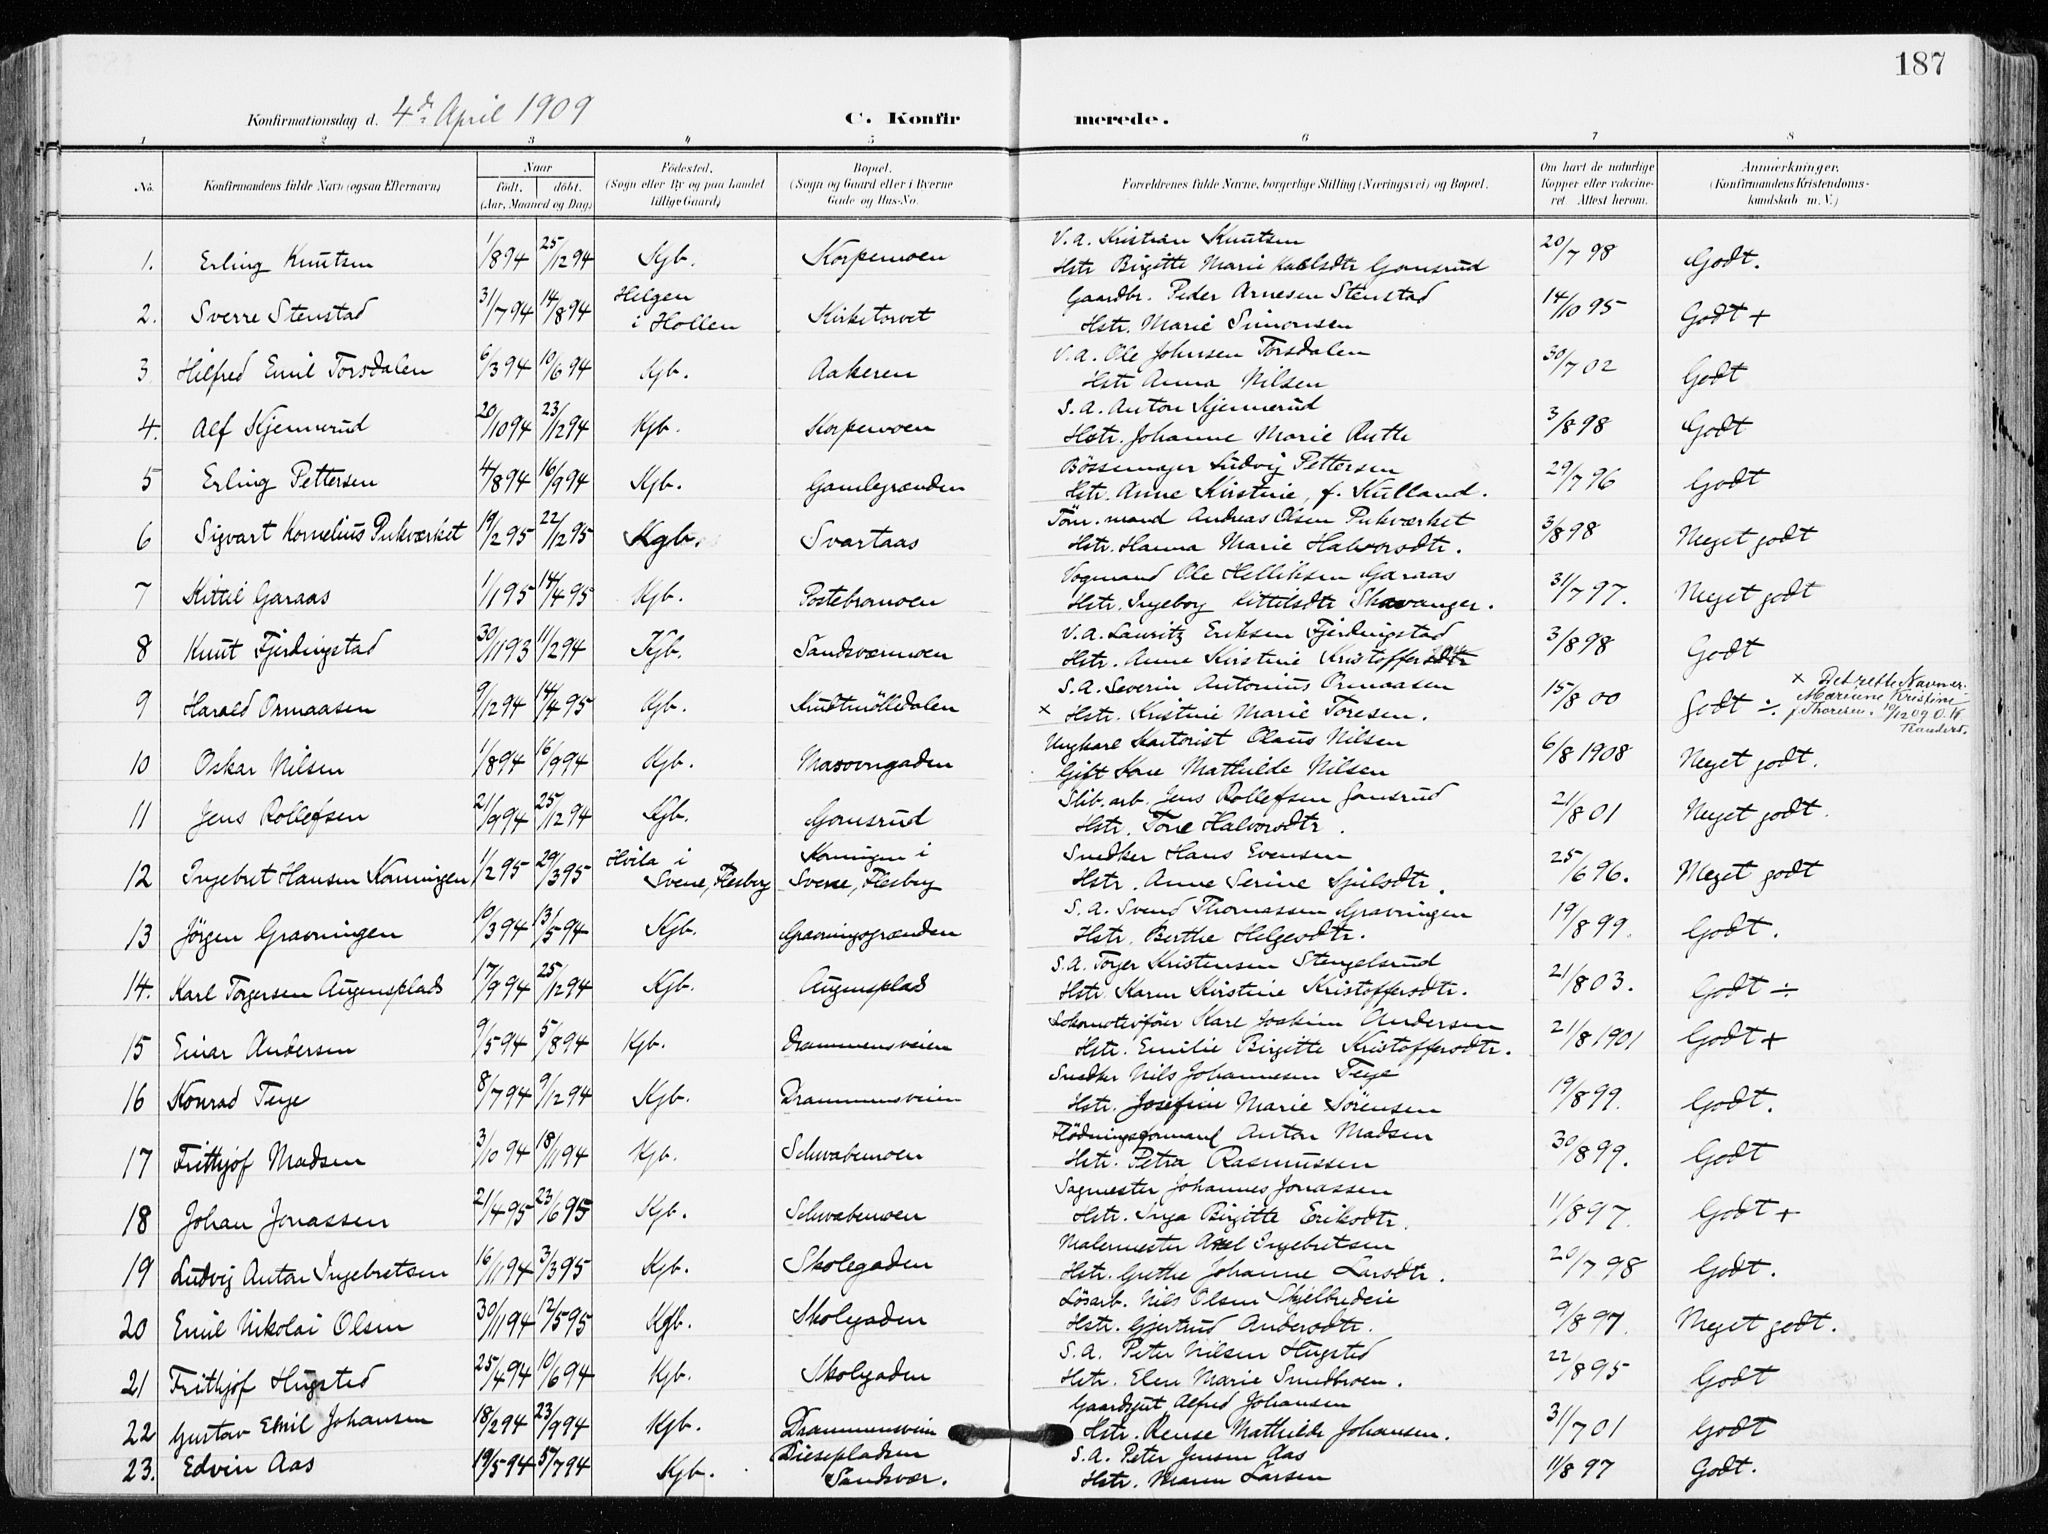 187
Konfirmationsdag d. 4de April 1909
C. Konfirmerede.
1 2 3 4 5 6 7 8
No. Konfirmandens fulde Navn (ogsaa Efternavn) Naar født. døbt. (Aar, Maaned og Dag) Fødested. (Sogn eller By og paa Landet tillige Gaard) Bopæl. (Sogn og Gaard eller i Byerne Gade og Hus-No. Forældrenes fulde Navne, borgerlige Stilling (Næringsvei) og Bopæl. Om havt de naturlige Kopper eller vakcineret. Attest herom. Anmærkninger. (Konfirmandens Kristendomskundskab m. V.)
1. Erling Knutsen 1/8 94 25/12 94 Kgb. Korpemoen V. a. Kristian Knutsen
Hstr Birgitte Marie Karlsdtr Gomsrud 20/7 98 Godt.
2. Sverre Stenstad 31/7 94 14/8 94 Helgen i Hollen Kirketorvet Gaardbr. Peder Arnesen Stenstad
Hstr. Marie Simonsen 14/10 95 Godt +
3 Hilfred Emil Torsdalen 6/3 94 10/6 94 Kgb. Aakeren V. a. Ole Johnsen Torsdalen
Hstr Anna Nilsen 30/7 02 Godt
4. Alf Kjennerud 20/10 94 23/12 94 Kgb. Korpemoen S. a. Anton Kjennerud
Hstr. Johanne Marie Ruth 3/8 98 Godt
5 Erling Pettersen 4/8 94 16/9 94 Kgb. Gamlegrænden Bössemager Ludvig Pettersen
Hstr. Anne Kirstine, f. Kulland. 29/7 96 Godt
6 Sigvart Kornelius Pukværket 19/2 95 22/12 95 Kgb. Svartaas Töm. mand Andreas Olsen Pukværket
Hstr. Hanna Marie Halvorsdtr. 3/8 98 Meget godt
7 Kittil Garaas 1/1 95 14/4 95 Kgb. Postebromoen Vogmand Ole Helliksen Garaas
Hstr. Ingeborg Kittilsdtr Skavanger. 31/7 97. Meget godt
8 Knut Fjerdingstad 30/11 93 11/2 94 Kgb. Sandsværmoen V. a. Lauritz Eriksen Fjerdingstad
Hstr. Anne Kirstine Kristoffersdtr 3/8 98 Godt
9 Harald Ormaasen 9/12 94 14/4 95 Kgb. Krudtmölledalen S. a. Severin Antonius Ormaasen
× Hstr. Kristine Marie Toresen. 15/8 00 Godt ÷
× Det rette Navn er
Marianne Kristine
f. Thoresen. 10/12 09 O. H.
Randers.
10 Oskar Nilsen 1/8 94 16/9 94 Kgb. Masovngaden Ungkarl Kartonist Olaus Nilsen
Gift Kone Mathilde Nilsen 6/8 1908 Meget godt.
11 Jens Rollefsen 21/9 94 25/12 94 Kgb. Gomsrud Slib. arb. Jens Rollefsen Gomsrud
Hstr. Tone Halvorsdtr. 21/8 01 Meget godt.
12 Ingebret Hansen Korningen 1/2 95 29/3 95 Hvila i Svene, Flesberg Korningen i Svene, Flesberg Snedker Hans Evensen
Hstr. Anne Serine Gjulsdtr. 25/6 96. Meget godt
13 Jörgen Gravningen 10/3 94 13/5 94 Kgb. Gravningsgrænden S. a. Svend Thomassen Gravningen
Hstr. Berthe Helgesdtr. 19/8 99. Godt.
14. Karl Torgersen Augensplads 17/9 94 25/12 94 Kgb. Augensplad S. A. Torger Kristensen Stengelsrud
Hstr. Karen Kirstine Kristoffersdtr. 21/8 03. Godt ÷
15 Einar Andersen 9/5 94 5/8 94 Kgb. Drammensveien Lokomotivförer Karl Joakim Andersen
Hstr. Emilie Birgitte Kristoffersdtr. 21/8 1901 Godt +
16 Konrad Teye 8/7 94 9/12 94 Kgb. Drammensveien Snedker Nils Johannesen Teye
Hstr. Josefine Marie Sörensen 19/8 99. Godt.
17 Frithjof Madsen 3/10 94 18/11 94 Kgb. Schwabemoen Flödningsformand Anton Madsen
Hstr. Petra Rasmussen 30/8 99. Godt
18 Johan Jonassen 21/4 95 23/6 95 Kgb. Schwabemoen Sagmester Johannes Jonassen
Hstr. Inga Birgitte Eriksdtr. 11/8 97. Godt +
19 Ludvig Anton Ingebretsen 16/11 94 3/3 95 Kgb. Skolegaden Malermester Axel Ingebretsen
Hstr. Grethe Johanne Larsdtr. 20/7 98 Godt.
20 Emil Nikolai Olsen 30/11 94 12/5 95 Kgb. Skolegaden Lösarb. Nils Olsen Skjelbredeie
Hstr. Gjertrud Andersdtr. 9/8 97. Meget godt.
21 Frithjof Hugsted 25/4 94 10/6 94 Kgb. Skolegaden S. a. Peter Nilsen Hugsted
Hstr. Elen Marie Smedbroen. 22/8 95 Godt
22 Gustav Emil Johansen 18/2 94 23/9 94 Kgb. Drammensveien Gaardsgut Alfred Johansen
Hstr. Rense Mathilde Johansen. 31/7 01 Godt
23. Edvin Aas 19/5 94 5/7 94 Kgb. Diesepladsen Sandsvær. S. A. Peter Jensen Aas
Hstr. Maren Larsen 11/8 97 Godt.